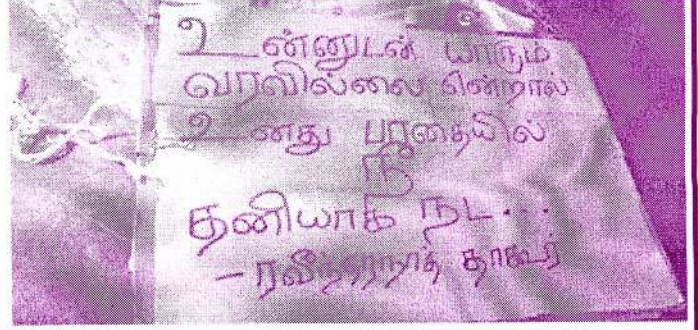 உன்னுடன் யாரும்
வரவில்லை என்றால்
உனது பாதையில்
நீ
தனியாக நட...
- ரவீந்தரநாத் தாகூர்